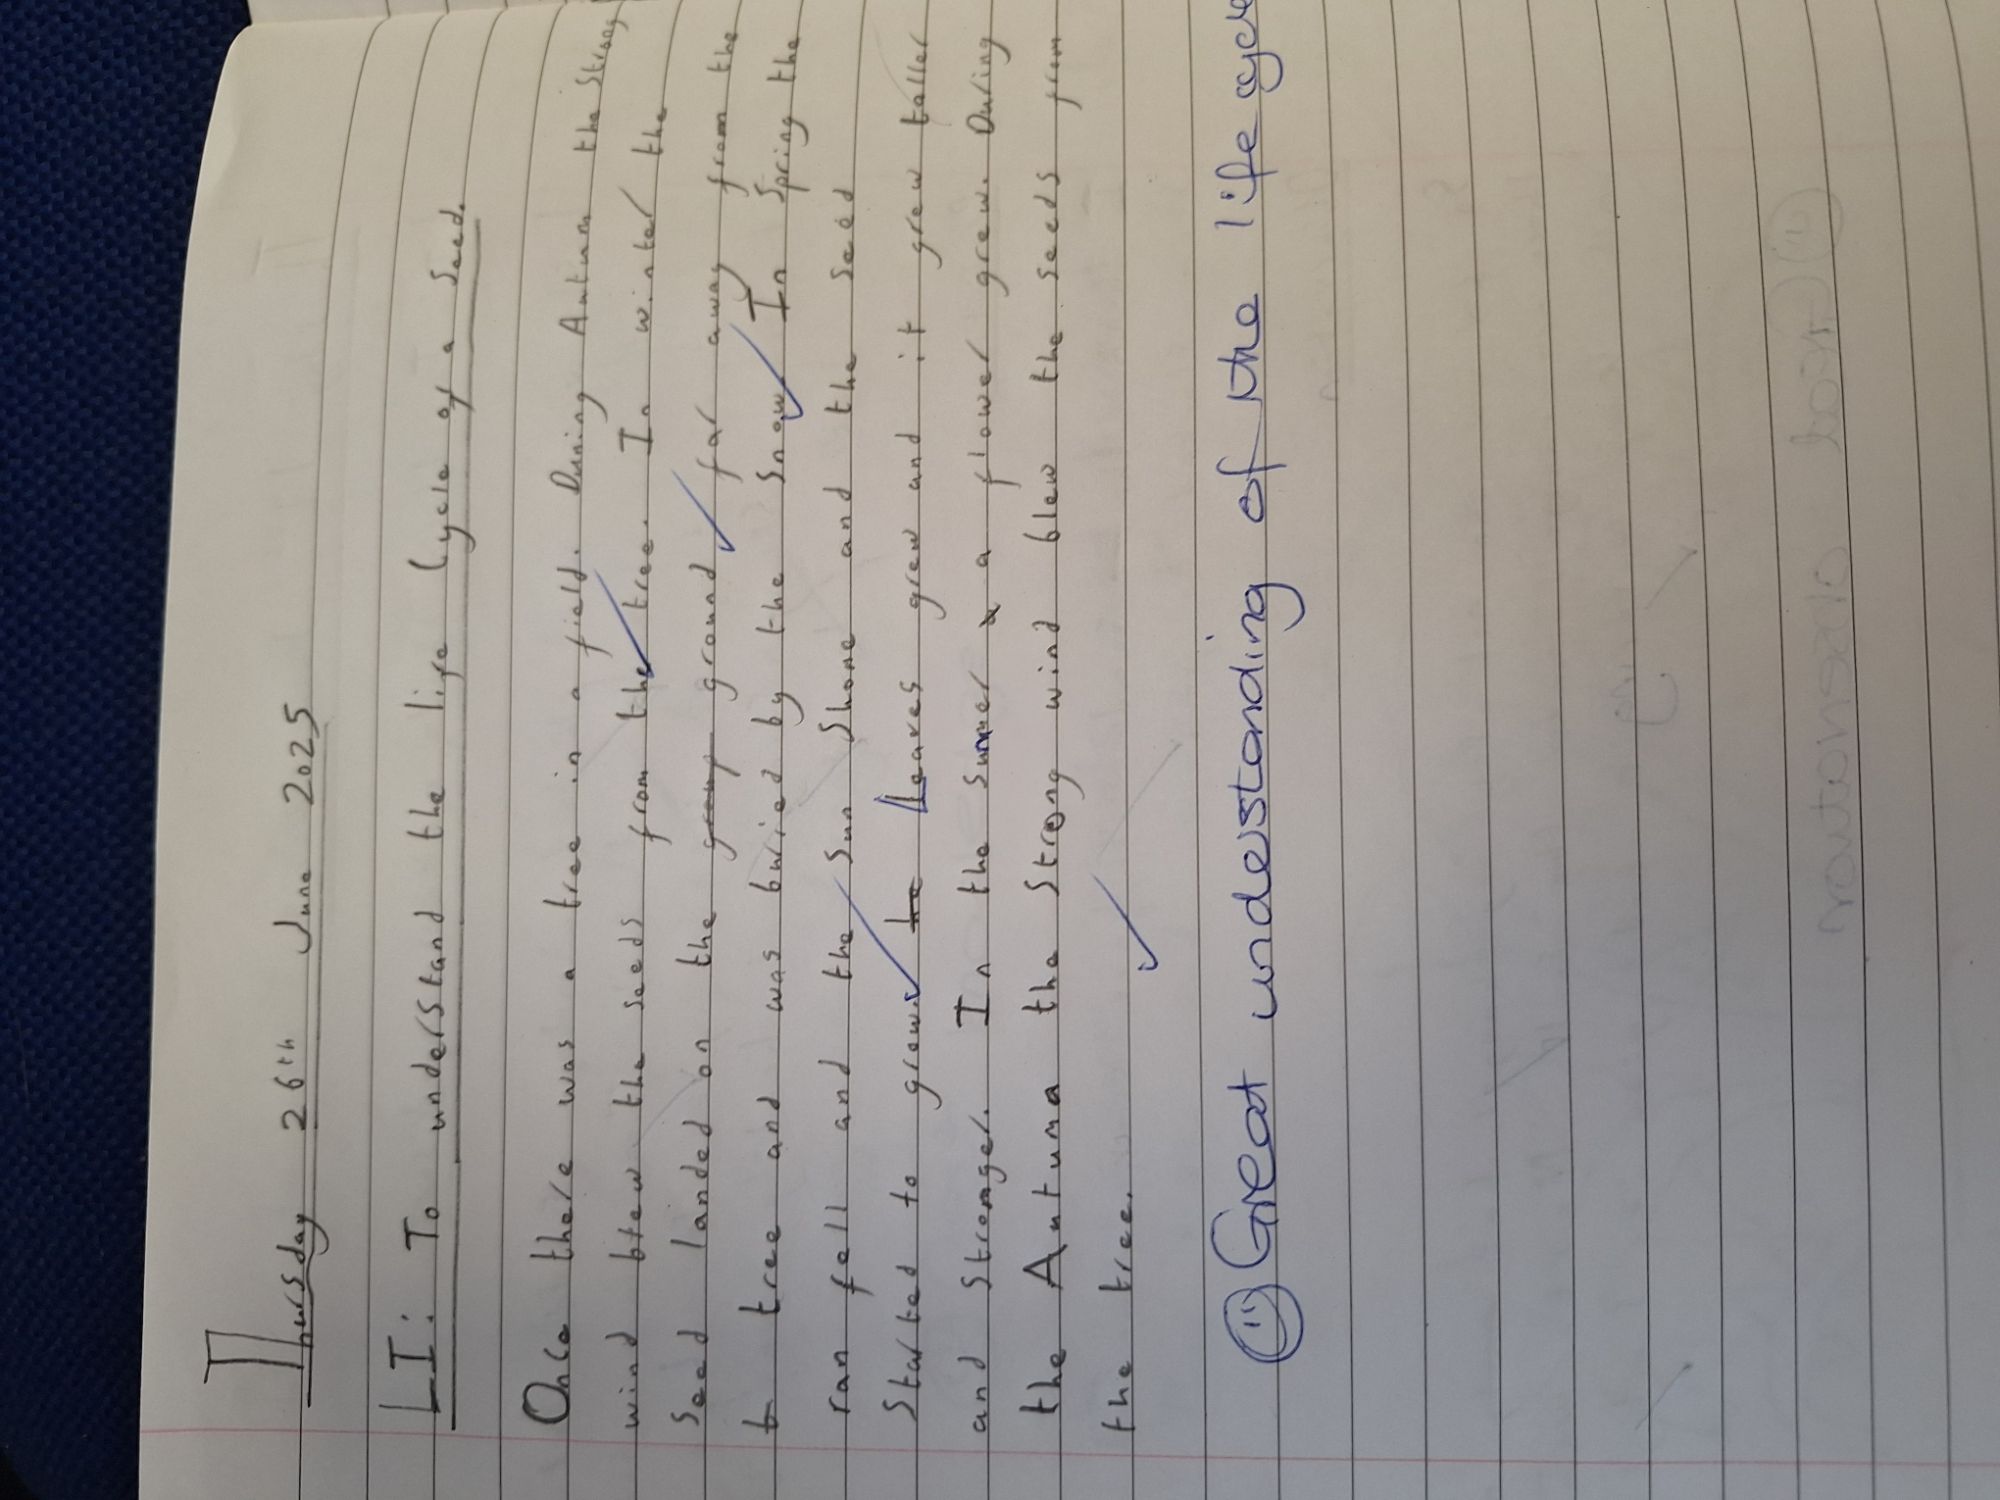 Thursday 26th June 2025
LI: To understand the life Cycle of a Seed.
Once there was a tree in a field. During Autum the Strong
wind blew the seeds from the tree. In winter the
Seed landed on the group ground far away from the
t tree and was buried by the Snow. In Spring the
ran fell and the Sun Shone and the seed
Started to grow. le Leaves grew and it grew taller
and Stronger. In the Summer a a flower grew. During
the Autuma the Strong wind blew the seeds from
the tree.
Great understanding of the life cycle